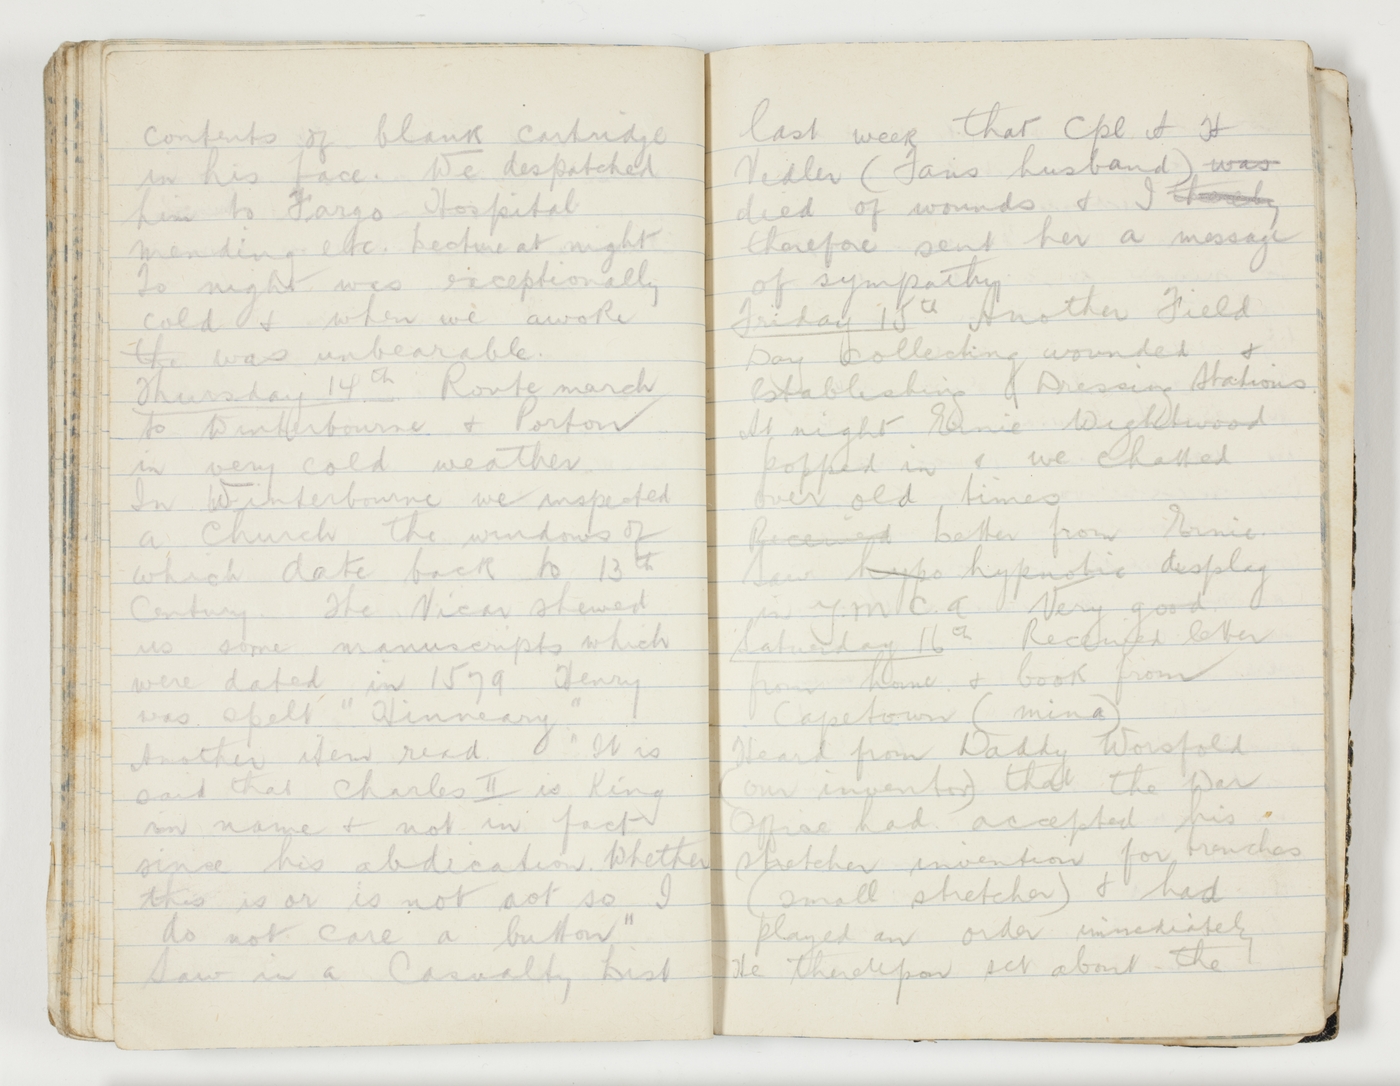 contents of blank cartridge
in his face. We despatched
him to Fargo Hospital
mending etc. Lecture at night
To night was exceptionally
cold & when we awoke
the was unbearable.
Thursday 14th Route march
to Winterbourne & Porton
in very cold weather
In Winterbourne we inspected
a Church the windows of
which date back to 13th
Century. The Vicar shewed
us some manuscripts which
were dated in 1579 Henry
was spelt "Hinneary"
Another item read "It is
said that Charles II is King
in name & not in fact
since his abdication. Whether
this is or is not act so I
do not care a button"
Saw in a Casualty List
last week that Cpl & H
Vidler (Fans husband) was
died of wounds & I thereby
therefore sent her a message
of sympathy
Friday 15th Another Field
Day collecting wounded &
establishing Dressing Stations
At night Ernie Wightwood
popped in & we chatted
over old times
Received letter from Ernie.
Saw hypo hypnotic display
in Y.M.C.A Very good.
Saturday 16th Received letter
from home & book from
Capetown (mina)
Heard from Daddy Worsfold
(our inventor) that the War
Office had accepted his
stretcher invention for trenches
(small stretcher) & had
played an order immediately
He thereupon set about the